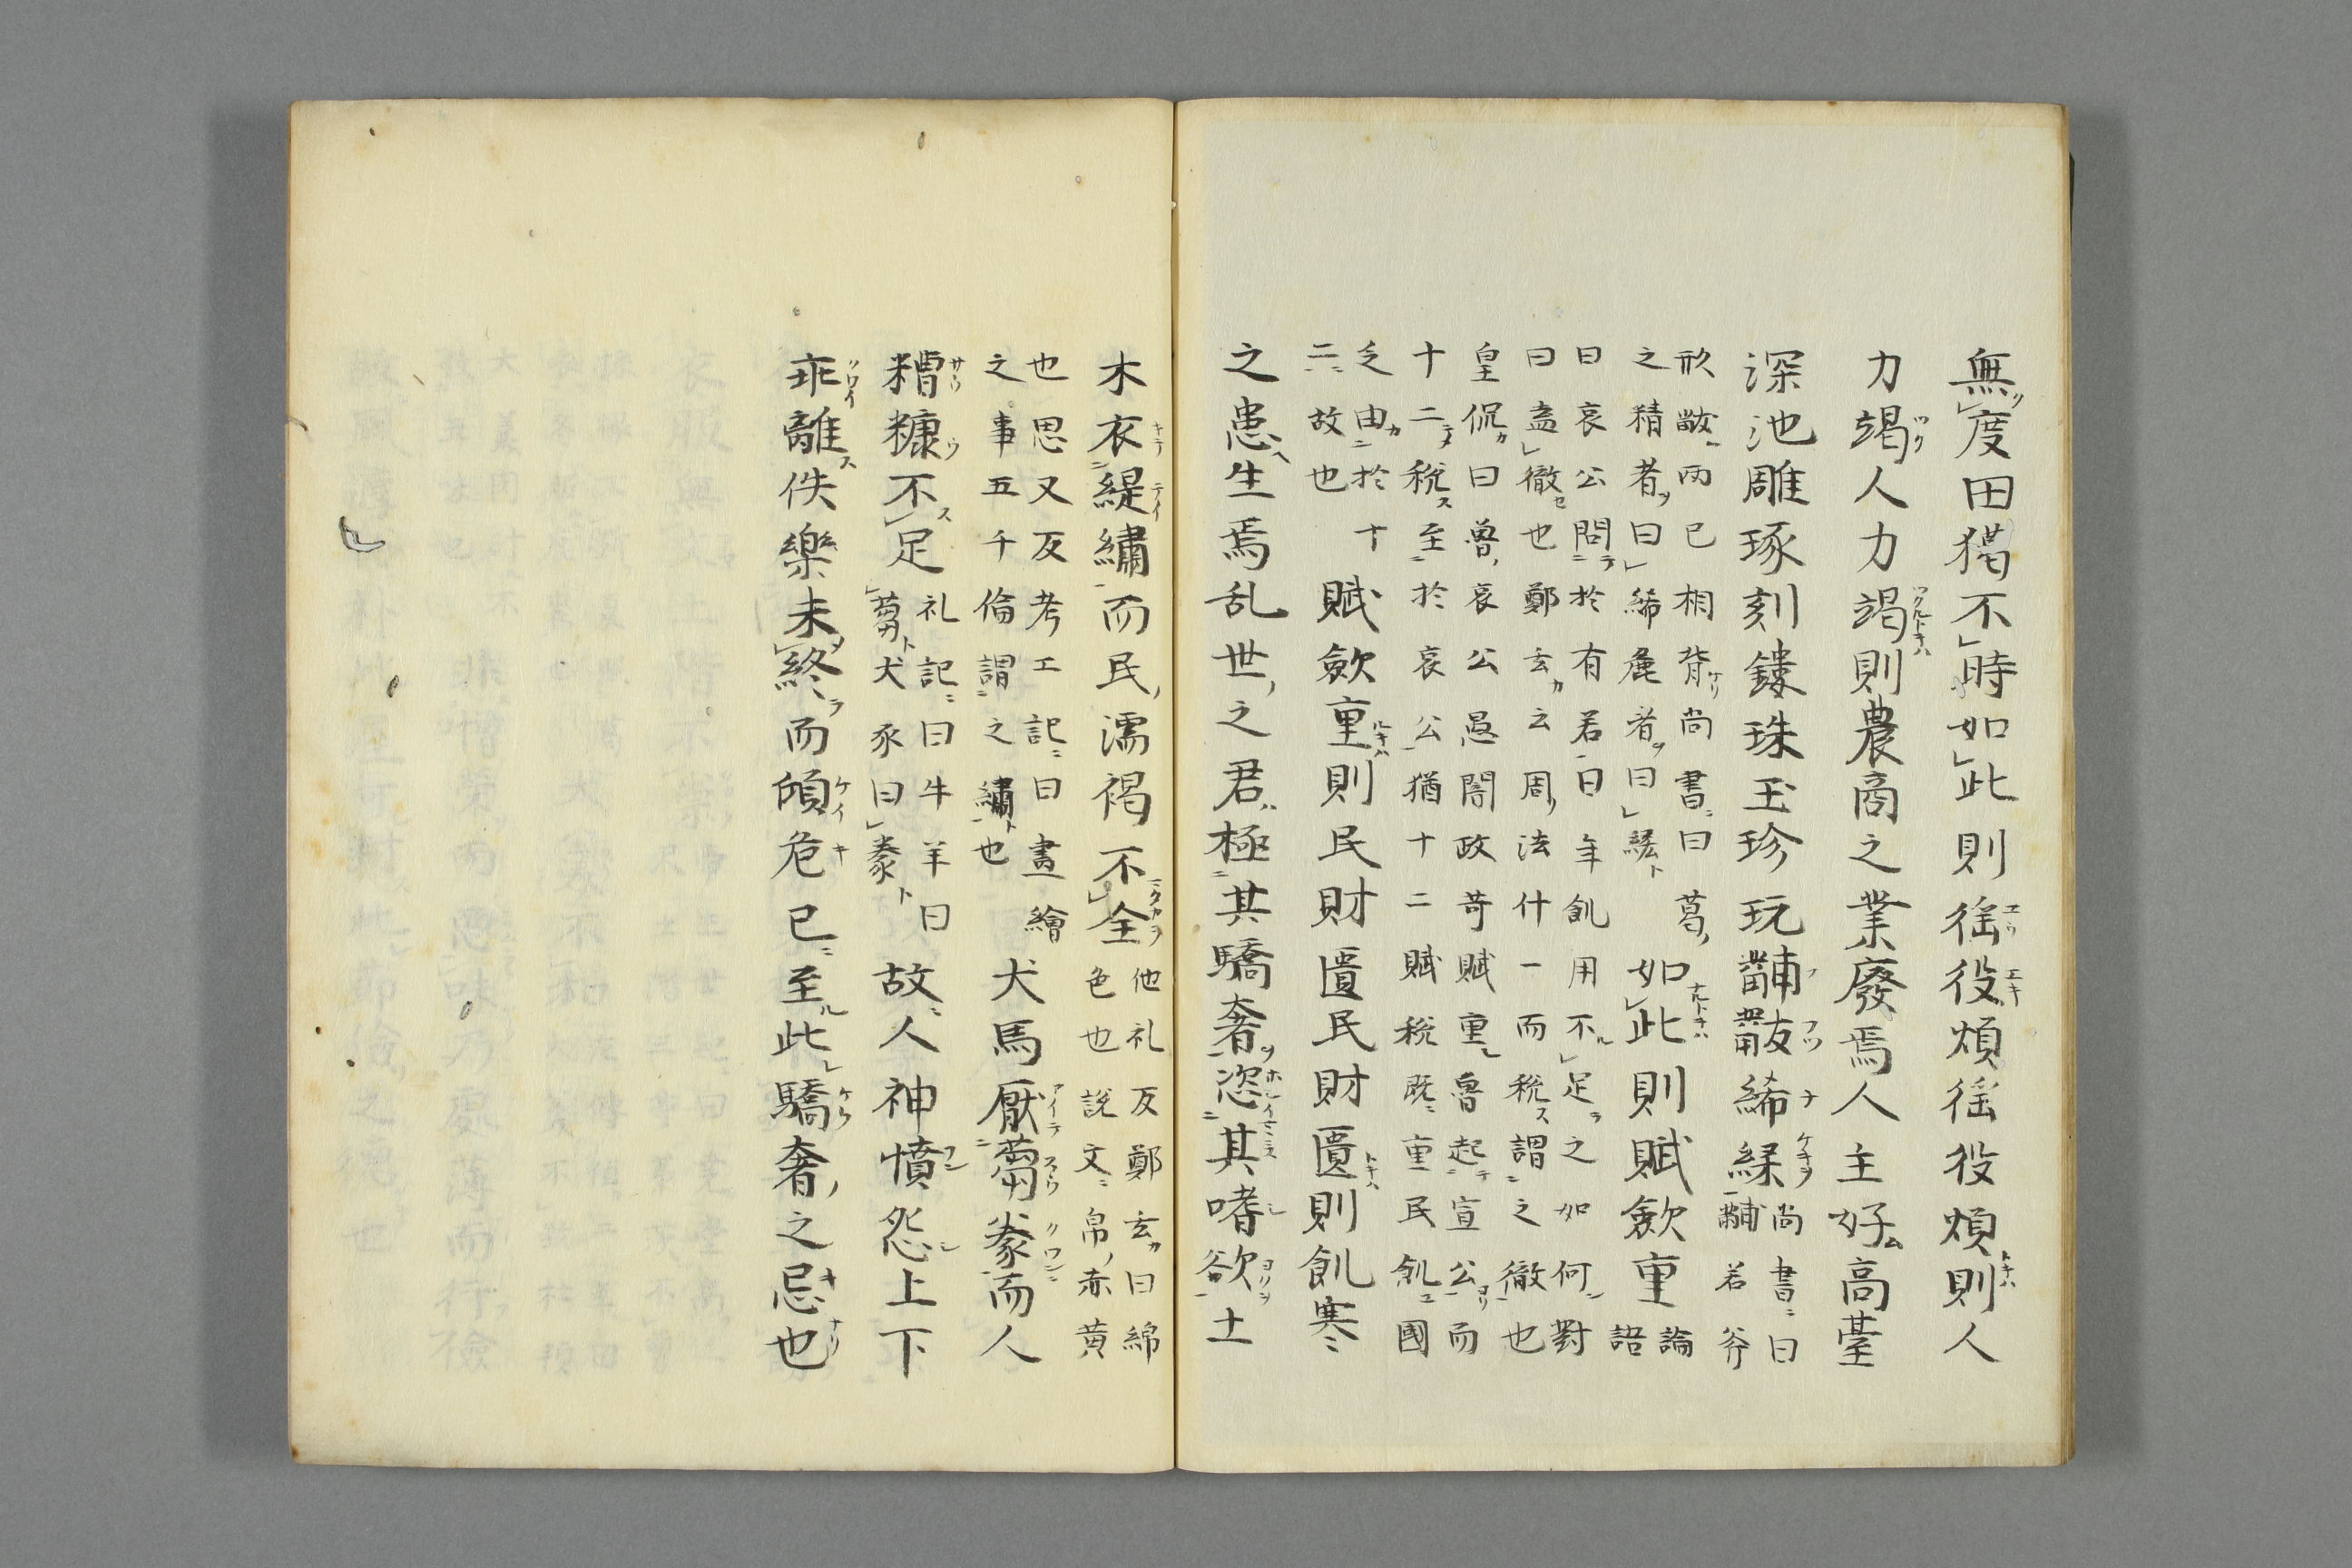 無度田猟不時如此則徭役煩徭役煩則人
力竭人力竭則農商之業廢焉人主好高臺
深池雕琢刻鏤珠玉珍玩黼黻絺綌尚書曰黼若斧
形黻兩已相背尚書曰葛之精者曰絺麁者曰綌如此則賦斂重論語
曰哀公問於有若曰年飢用不足之如何對曰盍徹也鄭玄云周法什一而税謂之徹也
皇侃曰魯哀公愚闇政苛賦重魯起宣公而十二税至於哀公猶十二賦税既重民飢國
乏由於十二故也賦斂重則民財匱民財匱則飢寒
之患生焉乱世之君極其驕奢恣其嗜欲土
木衣緹繡而民濡褐不全他礼反鄭玄曰綿色也説文帛赤黄
也思又反考工記曰畫繪之事五千倫謂之繡也犬馬厭蒭豢而人
糟糠不足礼記曰牛羊曰蒭犬豕曰豢故人神憤怨上下
乖離佚樂未終而傾危已至此驕奢之忌也